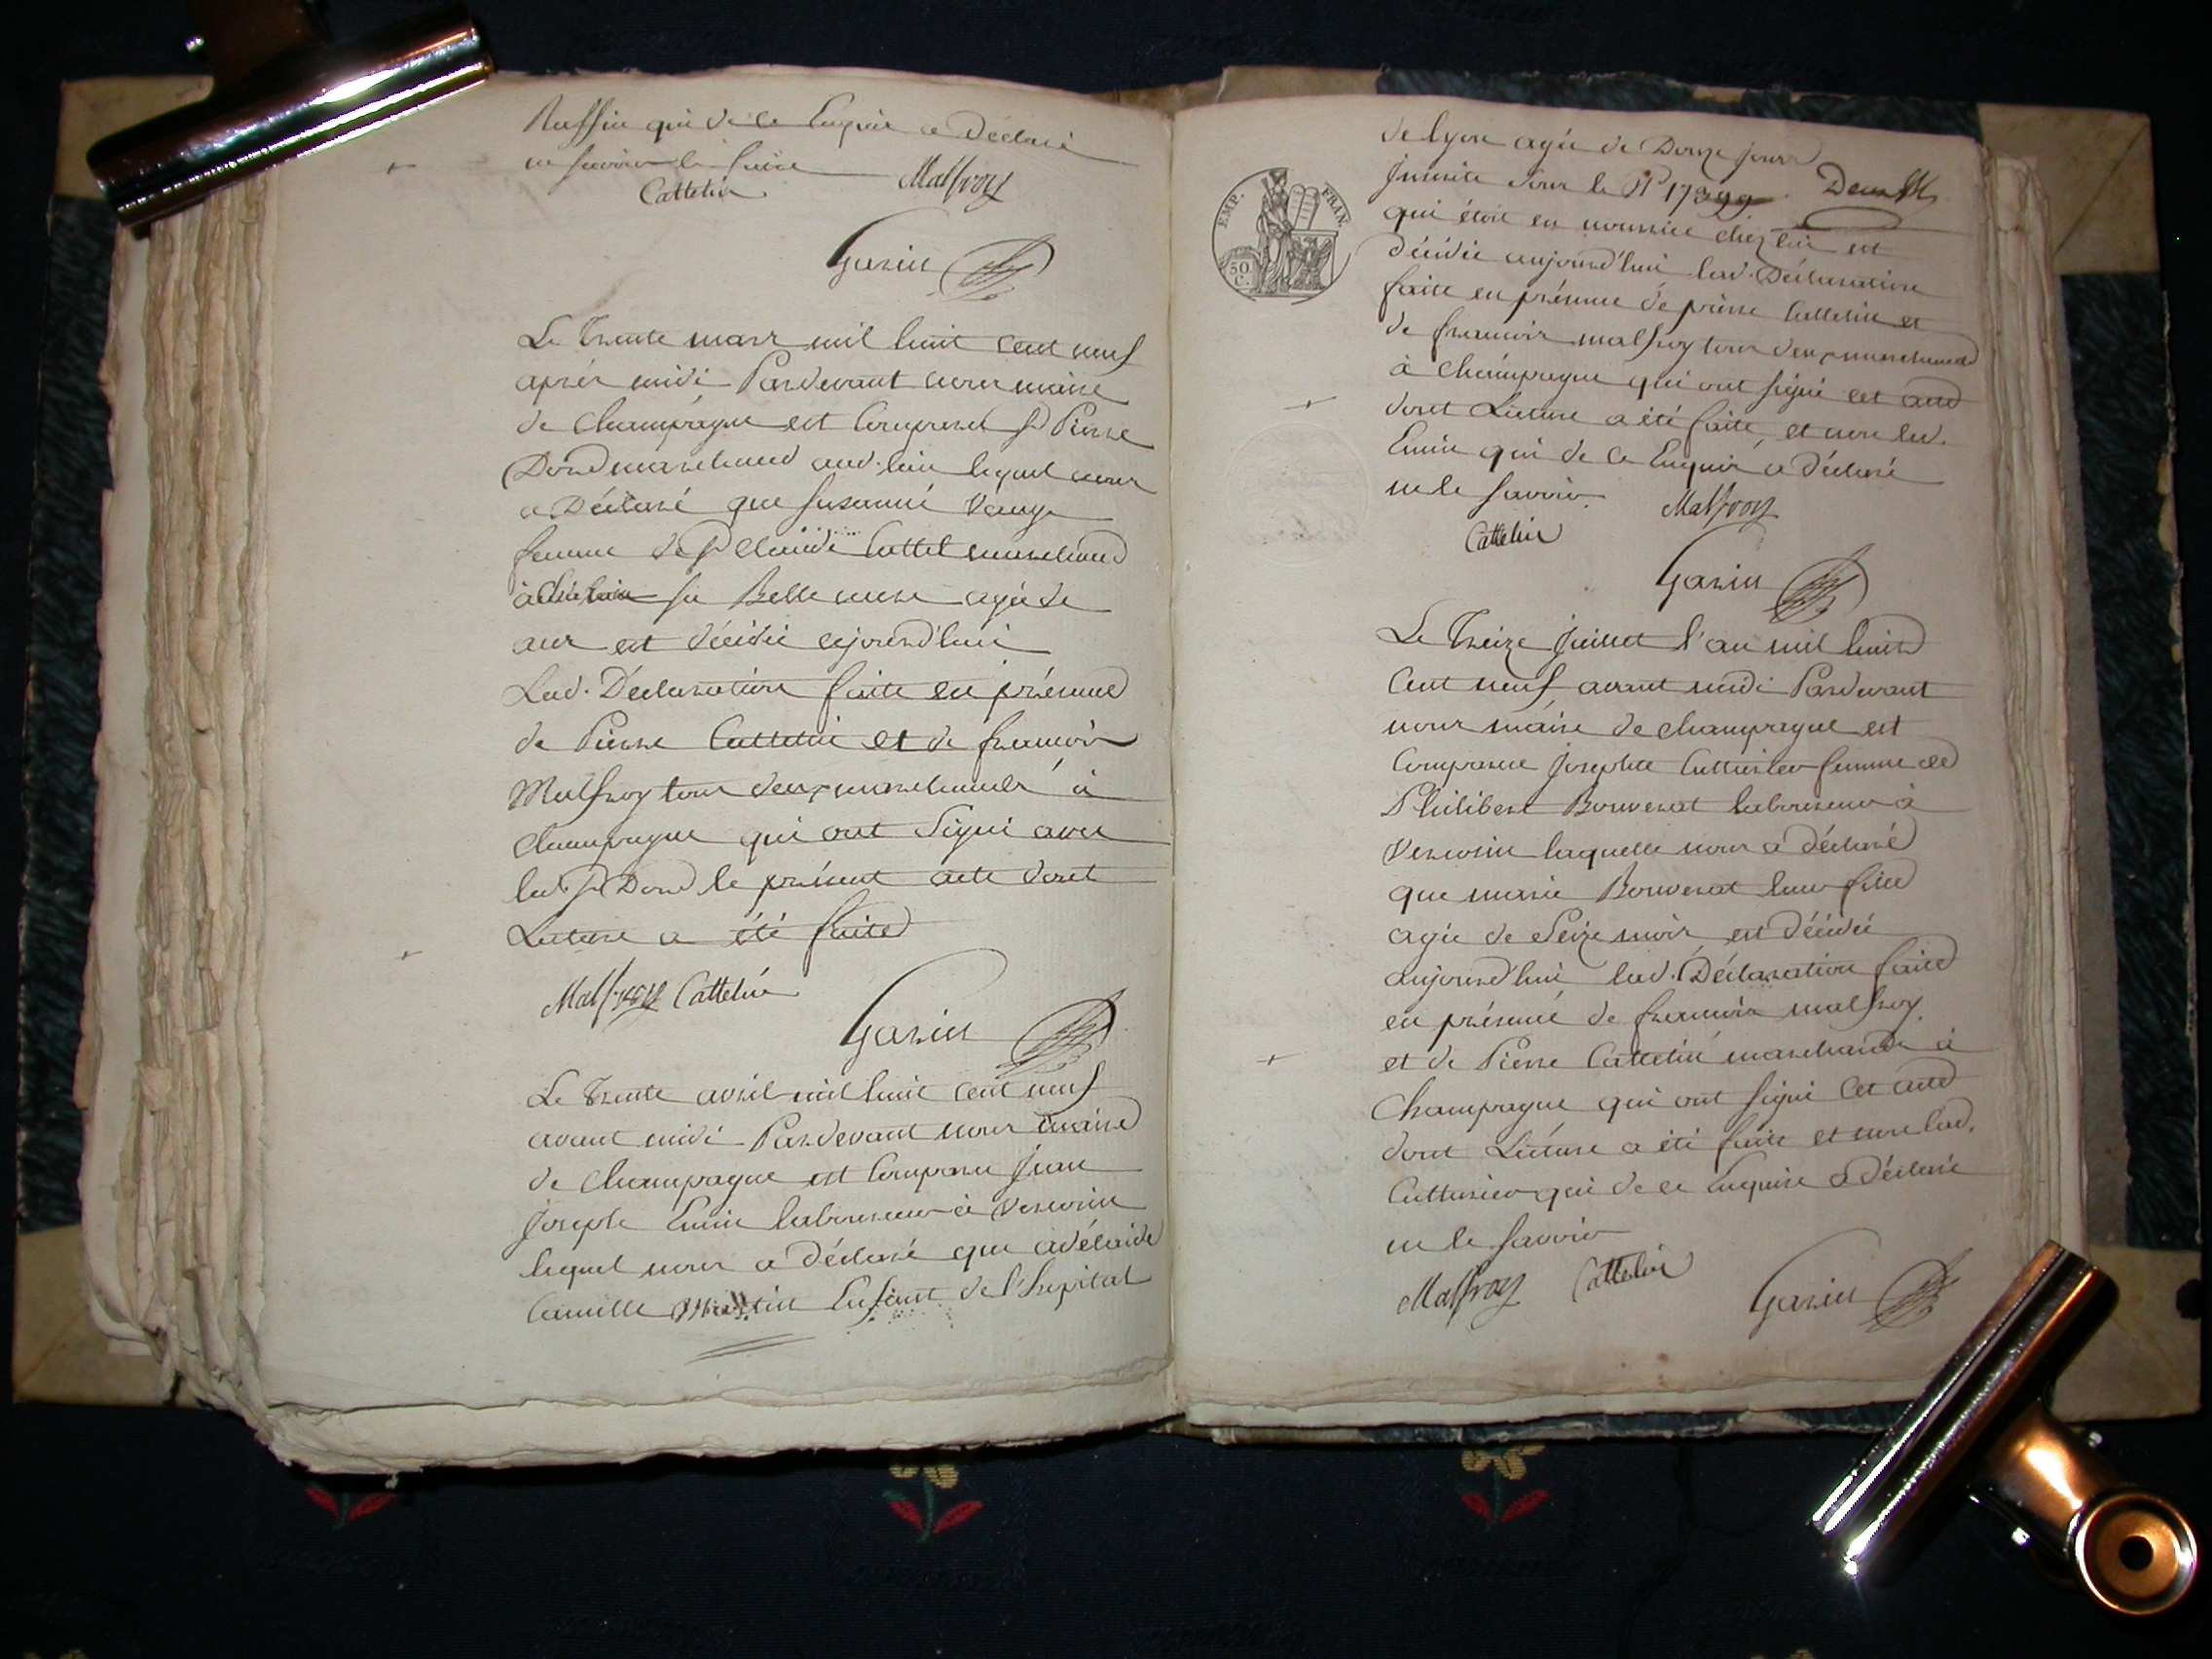 Ruffin qui de ce Enquis a Déclaré
ne savoir le faire
Cattelin Malfroy
Garin
Le Trente mars mil huit cent neuf
après midi Pardevant nous maire
de Champagne est Comparu Sr Pierre
Dord marchand aud. lieu lequel nous
a Déclaré que Susanne
femme de Sr Claude Cattel marchand
sa Belle mere agée de
ans est décédée cejourd'hui
Lad. Déclaration faite en présence
de Pierre Cattelin et de francois
Malfroy tous deux marchands à
Champagne qui ont Signé avec
led. Sr Dord le présent acte dont
Lecture a été faite
Malfroy Cattelin
Garin
Le Trente avril mil huit cent neuf
avant midi Pardevant nous maire
de Champagne est Comparu Jean
Joseph Emin laboureur à Verosin
lequel nous a déclaré que adélaide
Camille Enfant de l'hopital
EMP. FRAN.
50 C.
de lyon agée de Douze jours
sous le N° 17399
qui étoit en nourrice chez lui est
décédée aujourd'hui lad. Déclaration
faite en présence de pierre Cattelin et
de francois malfroy tous deux marchands
à Champagne qui ont signé cet acte
dont Lecture a été faite, et non led.
Emin qui de ce Enquis a déclaré
ne le savoir Malfroy
Cattelin
Garin
Le Treize Juillet l'an mil huit
Cent neuf avant midi Pardevant
nous maire de champagne est
Comparue Josephte femme de
Philibert Bouverat laboureur à
Verosin laquelle nous a déclaré
que marie Bouverat leur fille
agée de Seize mois est décédée
aujourd'hui lad. Déclaration faite
en présence de francois malfroy
et de Pierre Cattelin marchands à
Champagne qui ont signé Cet acte
dont Lecture a été faite et non lad.
qui de ce Enquise a déclaré
ne le savoir
Malfroy Cattelin Garin